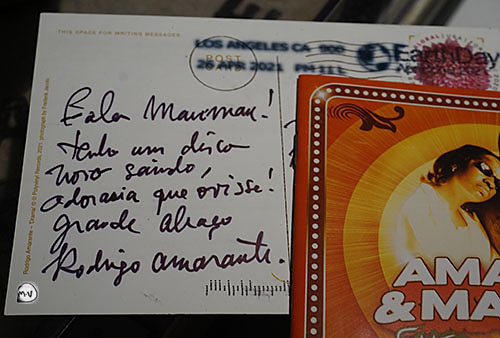 THIS SPACE FOR WRITING MESSAGES
LOS ANGELES CA 900
25 APR 2021 PM
POST
EarthDay
April
Fala Marcman!
tenho um disco
novo saindo,
adoraria que ouvisse!
grande abraço
Rodrigo Amarante.
Rodrigo Amarante - "Drama" © © Polyvinyl Records, 2021 photograph by Frederik Jacobi
MV
AMA
& MA